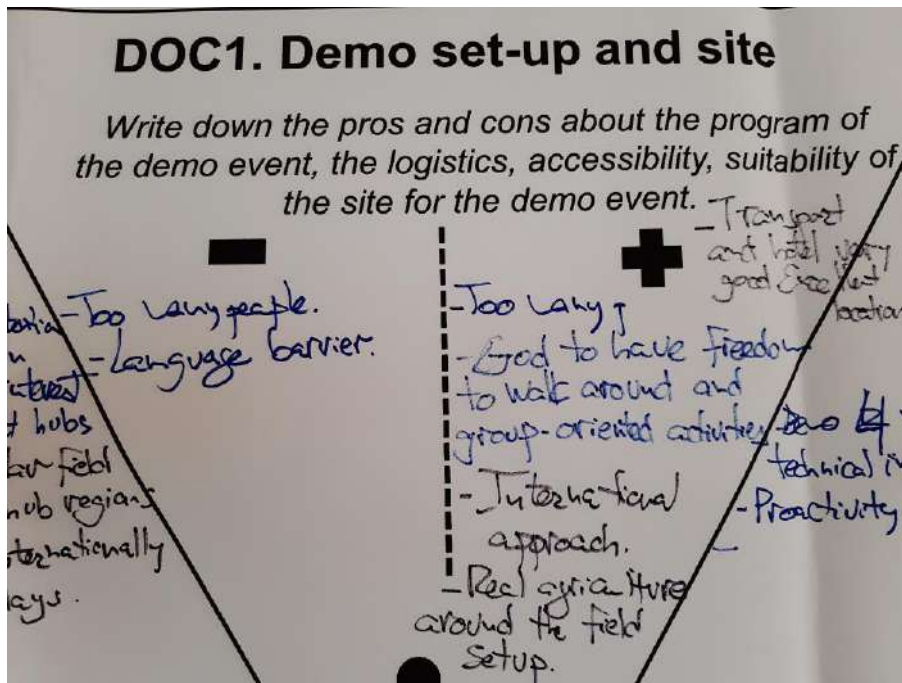 DOC1. Demo set-up and site
Write down the pros and cons about the program of
the demo event, the logistics, accessibility, suitability of
the site for the demo event.
- Transport
and hotel very
good Excellent
location
- Too many people.
- Language barrier.
- Too many
- God to have freedom
to walk around and
group-oriented activities
- International
approach.
- Real agriculture
around the field
Setup.
hubs
field
hub regions
ternationally
ays.
Demo
technical
- Proactivity